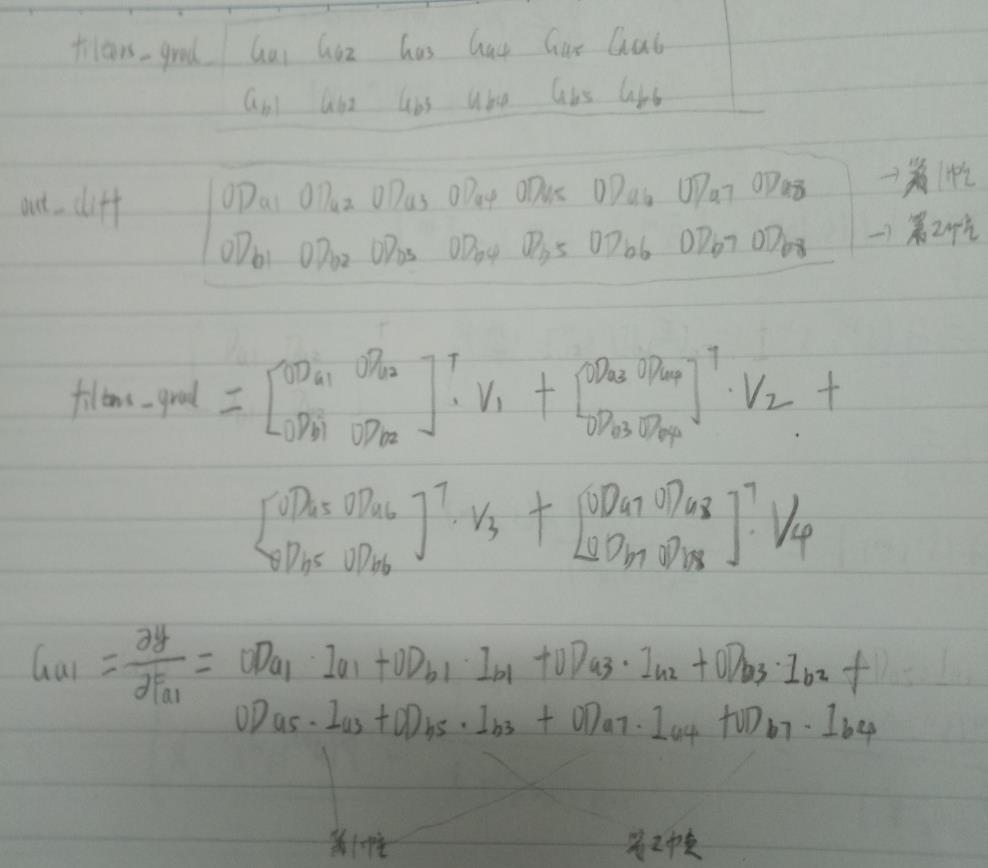 filters_grad Ga1 Ga2 Ga3 Ga4 Ga5 Ga6
Gb1 Gb2 Gb3 Gb4 Gb5 Gb6
out_diff ODa1 ODa2 ODa3 ODa4 ODa5 ODa6 ODa7 ODa8 → 第1个
ODb1 ODb2 ODb3 ODb4 Db5 ODb6 ODb7 ODb8 → 第2个
filters_grad = [ODa1 ODa2
ODb1 ODb2]ᵀ · V1 + [ODa3 ODa4
ODb3 ODb4]ᵀ · V2 +
[ODa5 ODa6
ODb5 ODb6]ᵀ · V3 + [ODa7 ODa8
ODb7 ODb8]ᵀ · V4
Ga1 = ∂y/∂Fa1 = ODa1 · Ia1 + ODb1 · Ib1 + ODa3 · Ia2 + ODb3 · Ib2 +
ODa5 · Ia3 + ODb5 · Ib3 + ODa7 · Ia4 + ODb7 · Ib4
第1个 第2个